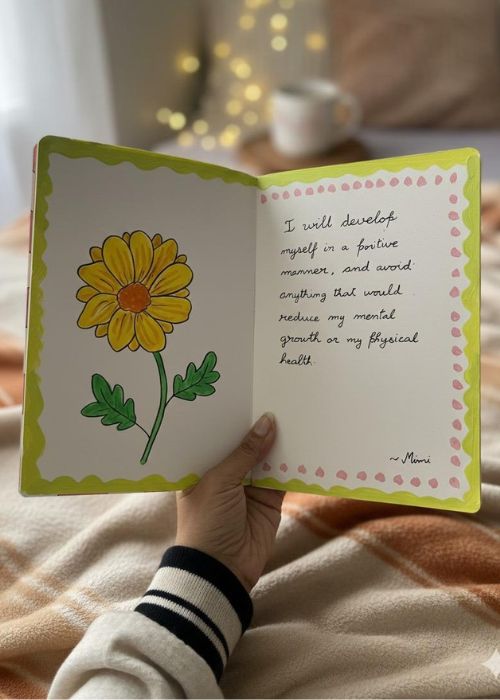 I will develop
myself in a positive
manner, and avoid
anything that would
reduce my mental
growth or my physical
health.
~ Mimi